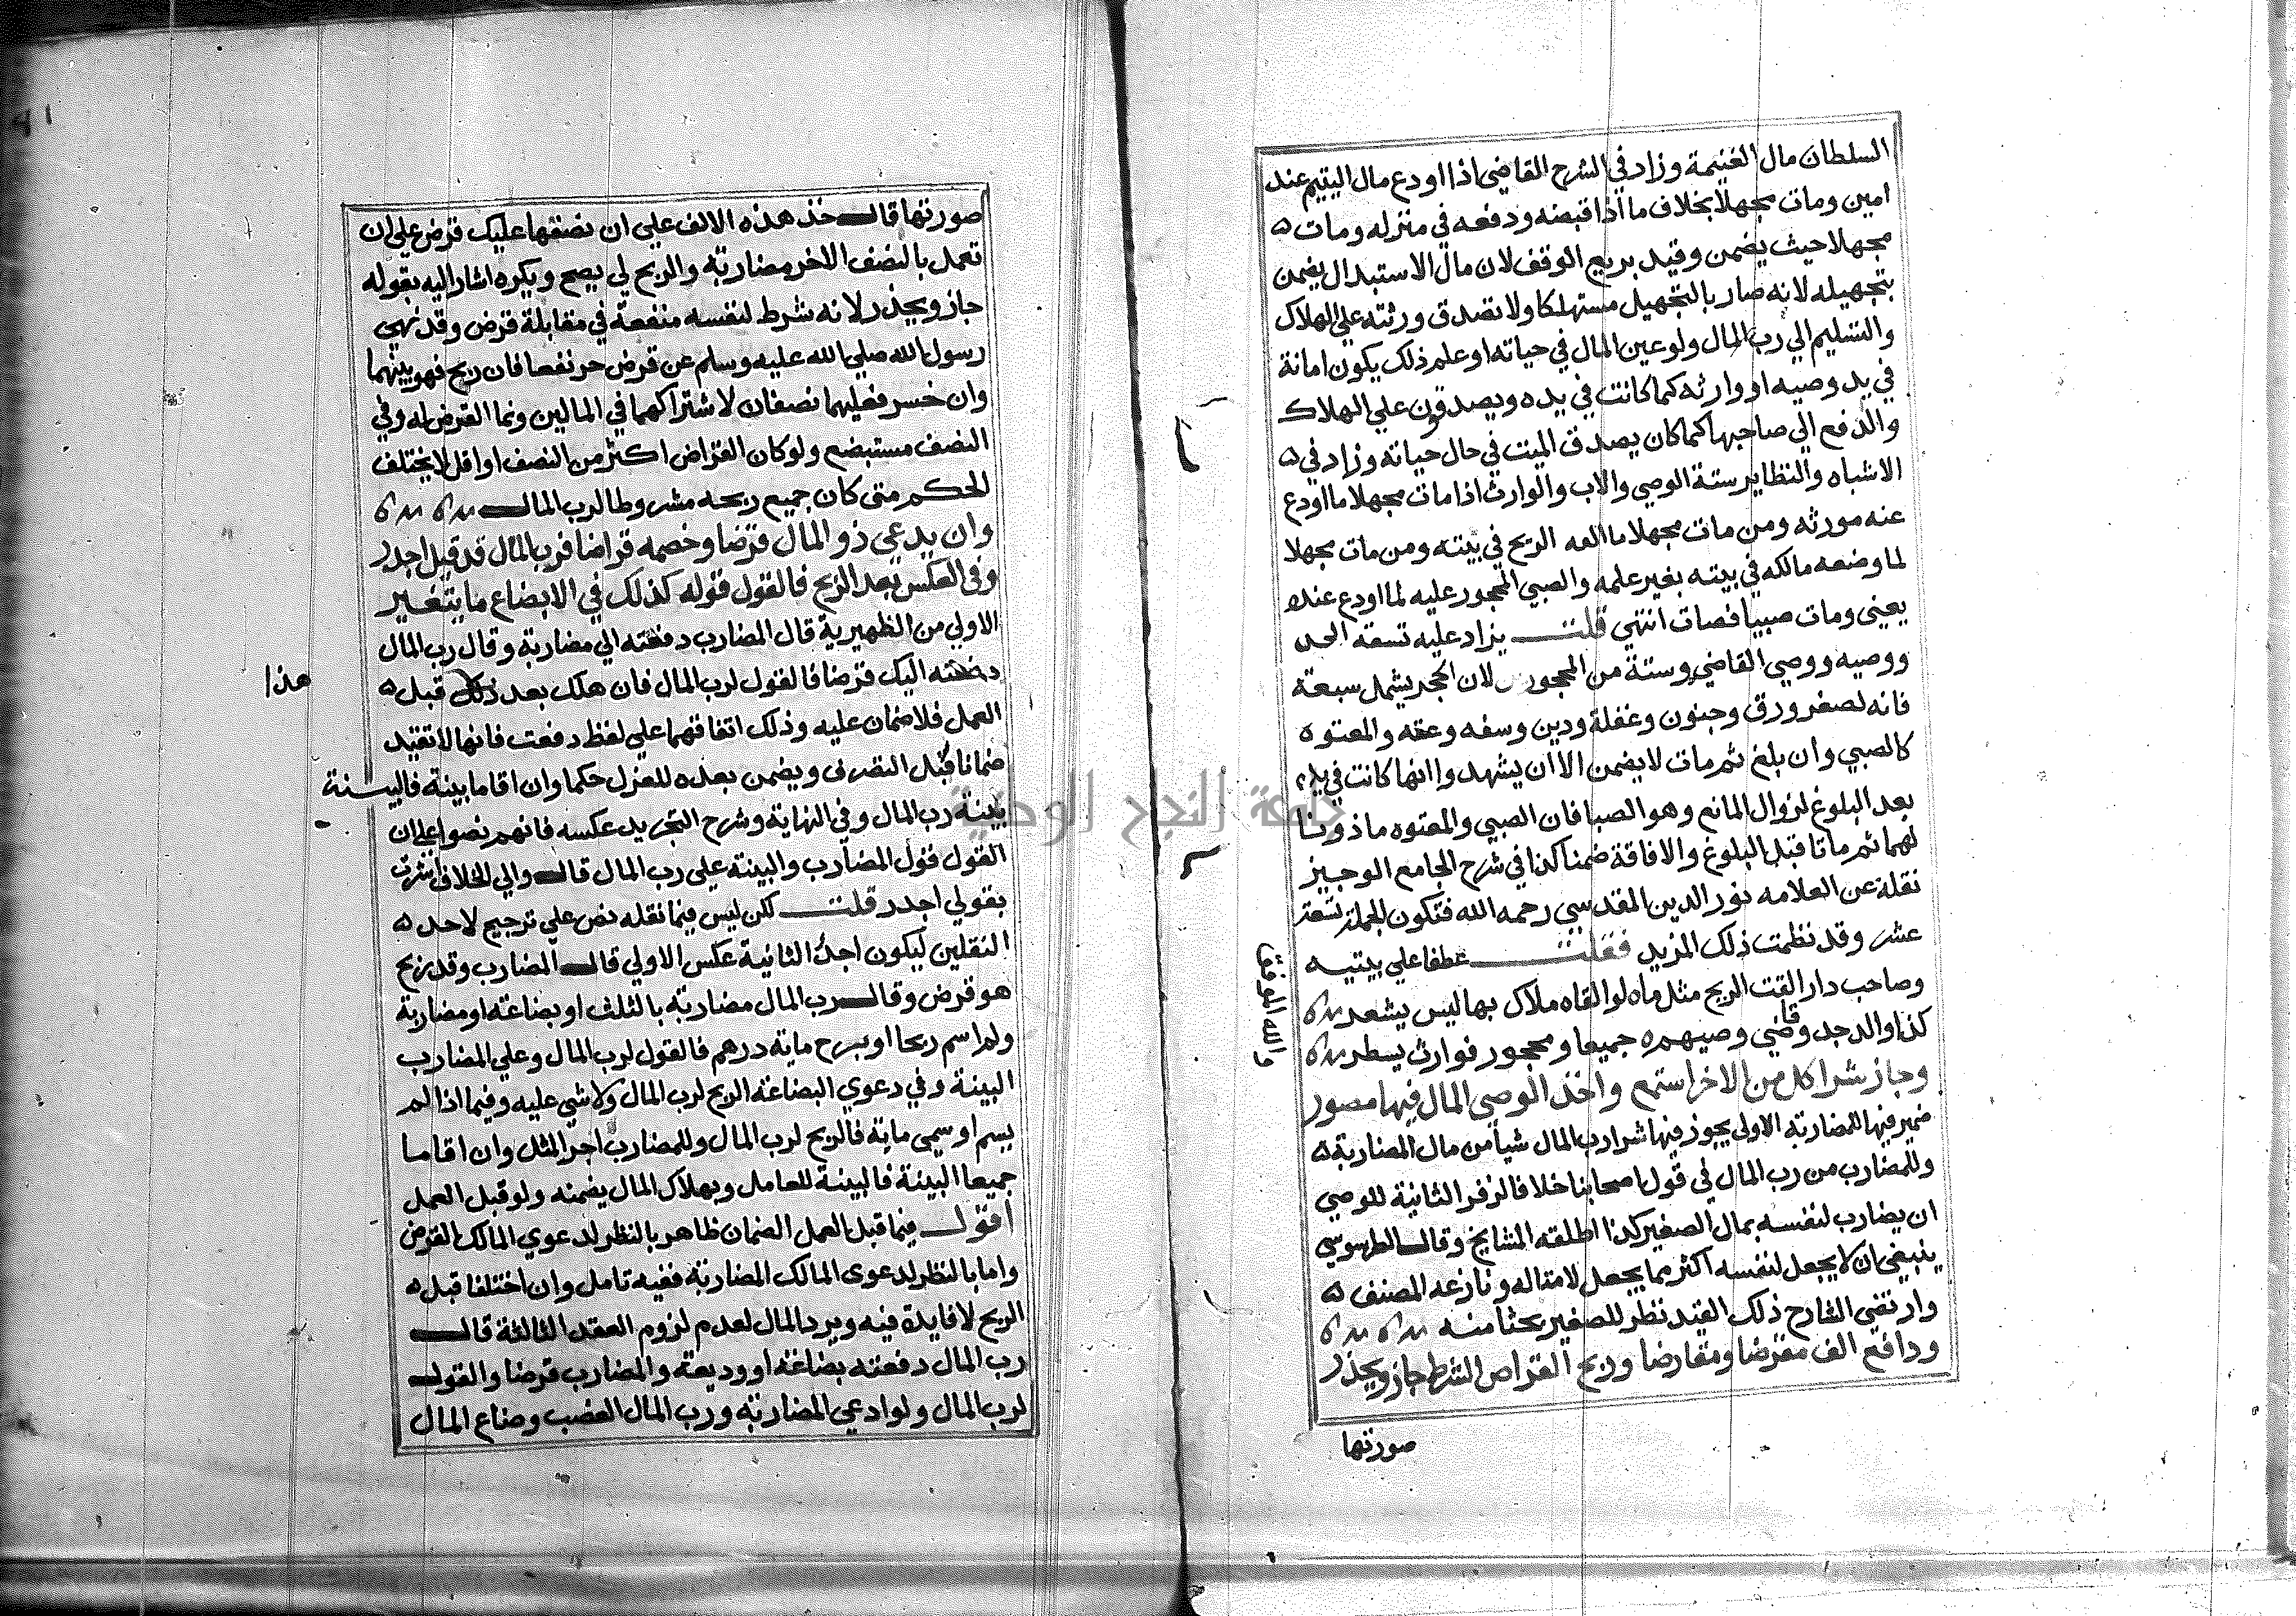 السلطان مال الغنيمة وزاد في الشرح القاضي اذا اودع مال اليتيم عند
امين ومات مجهلا بخلاف ما اذا قبضه ودفعه في منزله ومات
مجهلا حيث يضمن وقيد بريع الوقف لان مال الاستبدال يضمن
بتجهيله لانه صار بالتجهيل مستهلكا ولا تصدق ورثته علي الهلاك
والتسليم الي رب المال ولو عين المال في حياته او علم ذلك يكون امانة
في يد وصيه او وارثه كما كانت في يده ويصدقون علي الهلاك
والدفع الي صاحبها كما كان يصدق الميت في حال حياته وزاد في
الاشباه والنظاير ستة الوصي والاب والوارث اذا مات مجهلا ما اودع
عنه مورثه ومن مات مجهلا ما القه الريح في بيته ومن مات مجهلا
لما وضعه مالكه في بيته بغير علمه والصبي المحجور عليه لما اودع عنده
يعني ومات صبيا فصات انتهي قلت يزاد عليه تسعة الجد
ووصيه ووصي القاضي وستة من المحجورين لان الحجر يشمل سبعة
فانه لصغر ورق وجنون وغفلة ودين وسفه وعته والمعتوه
كالصبي وان بلغ ثم مات لا يضمن الا ان يشهدوا انها كانت في يده
بعد البلوغ لزوال المانع وهو الصبا فان الصبي والمعتوه ماذونا
لهما ثم ماتا قبل البلوغ والافاقة ضمنا كذا في شرح الجامع الوجيز
نقلة عن العلامه نور الدين المقدسي رحمه الله فتكون الجملة تسعة
عشر وقد نظمت ذلك المزيد فقلت عطفا علي بيتيه
وصاحب دار القت الريح مثل ماه لو القاه ملاك بها ليس يشعد
كذا والد جد وقاضي وصيهم جميعا ومحجور فوارث يسطر
والله الموفق
وجاز شرا كل من الاخر استمع واخذ الوصي المال فيها مصور
ضمير فيها للمضاربة الاولي يجوز فيها شرا رب المال شيأ من مال المضاربة
وللمضارب من رب المال في قول اصحابنا خلافا لزفر الثانية للوصي
ان يضارب لنفسه بمال الصغير كذا اطلقه المشايخ وقال الطرسوسي
ينبغي ان لا يجعل لنفسه اكثر مما يجعل لامثاله ونازعه المصنف
وارتضي الشارح ذلك القيد نظر للصغير بحثا منه
ودافع الف مقرضا ومقارضا وربح القراض الشرط جاز ويحذر
صورتها
صورتها قال خذ هذه الالف علي ان نصفها عليك قرض علي ان
تعمل بالنصف الاخر مضاربة والربح لي يصح ويكره اشار اليه بقوله
جاز ويحذر لانه شرط لنفسه منفعة في مقابلة قرض وقد نهي
رسول الله صلي الله عليه وسلم عن قرض جر نفعا فان ربح فهو بينهما
وان خسر فعليهما نصفان لاشتراكهما في المالين ونما القرض له وفي
النصف مستبضع ولو كان القراض اكثر من النصف او اقل لا يختلف
الحكم متي كان جميع ربحه مشروطا لرب المال
وان يدعي ذو المال قرضا وخصمه قراضا فرب المال قد قيل اجدر
وفي العكس بعد الربح فالقول قوله كذلك في الابضاع ما يتغير
الاولي من الظهيرية قال المضارب دفعته الي مضاربة وقال رب المال
دفعته اليك قرضا فالقول لرب المال فان هلك بعد ذلك قبل
هذا
العمل فلا ضمان عليه وذلك اتفاقهما علي لفظ دفعت فانها لا تفيد
ضمانا قبل التصرف ويضمن بعده للعزل حكما وان اقاما بينة فالبينة
بينة رب المال وفي النهاية وشرح التجريد عكسه فانهم نصوا علي ان
القول قول المضارب والبينة علي رب المال قال والي الخلاف اشرت
بقولي اجدر قلت لكن ليس فيما نقله نص علي ترجيح لاحد
النقلين ليكون اجدر الثانية عكس الاولي قال المضارب وقد ربح
هو قرض وقال رب المال مضاربة بالثلث او بضاعة او مضاربة
ولم اسم ربحا او بربح ماية درهم فالقول لرب المال وعلي المضارب
البينة وفي دعوي البضاعة الربح لرب المال ولا شي عليه وفيما اذا لم
يسم او سمي ماية فالربح لرب المال وللمضارب اجر المثل وان اقاما
جميعا البينة فالبينة للعامل وبهلاك المال يضمنه ولو قبل العمل
اقول فيما قبل العمل الضمان ظاهر بالنظر لدعوي المالك القرض
واما بالنظر لدعوي المالك المضاربة ففيه تامل وان اختلفا قبل
الربح لا فايدة فيه ويرد المال لعدم لزوم العقد الثالثة قال
رب المال دفعته بضاعة او وديعة والمضارب قرضا والقول
لرب المال ولو ادعي المضاربة ورب المال الغصب وضاع المال
جامعة النجاح الوطنية